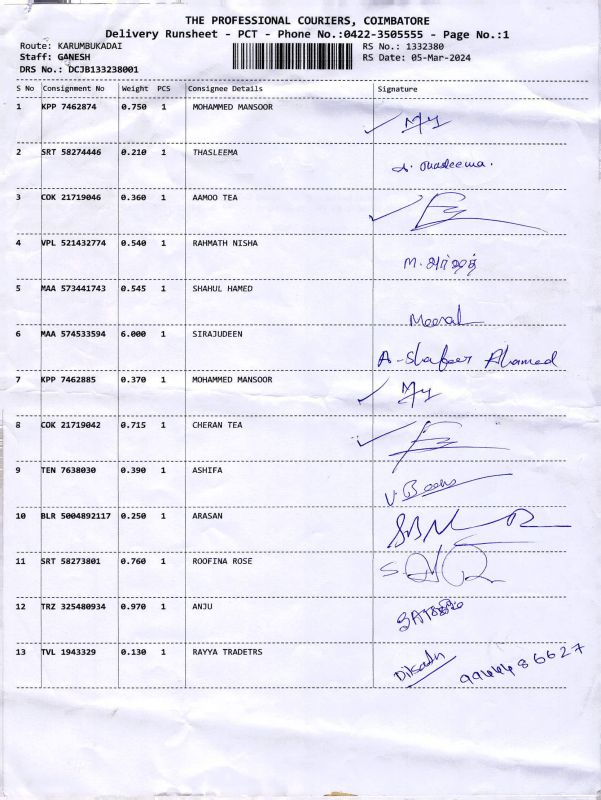 THE PROFESSIONAL COURIERS, COIMBATORE
Delivery Runsheet - PCT - Phone No.:0422-3505555 - Page No.:1
Route: KARUMBUKADAI RS No.: 1332380
Staff: GANESH RS Date: 05-Mar-2024
DRS No.: DCJB133238001
S No Consignment No Weight PCS Consignee Details Signature
1 KPP 7462874 0.750 1 MOHAMMED MANSOOR
2 SRT 58274446 0.210 1 THASLEEMA
3 COK 21719046 0.360 1 AAMOO TEA
4 VPL 521432774 0.540 1 RAHMATH NISHA
5 MAA 573441743 0.545 1 SHAHUL HAMED
6 MAA 574533594 6.000 1 SIRAJUDEEN
A-Shafeer Ahamed
7 KPP 7462885 0.370 1 MOHAMMED MANSOOR
8 COK 21719042 0.715 1 CHERAN TEA
9 TEN 7638030 0.390 1 ASHIFA
10 BLR 5004892117 0.250 1 ARASAN
11 SRT 58273801 0.760 1 ROOFINA ROSE
12 TRZ 325480934 0.970 1 ANJU
13 TVL 1943329 0.130 1 RAYYA TRADETRS